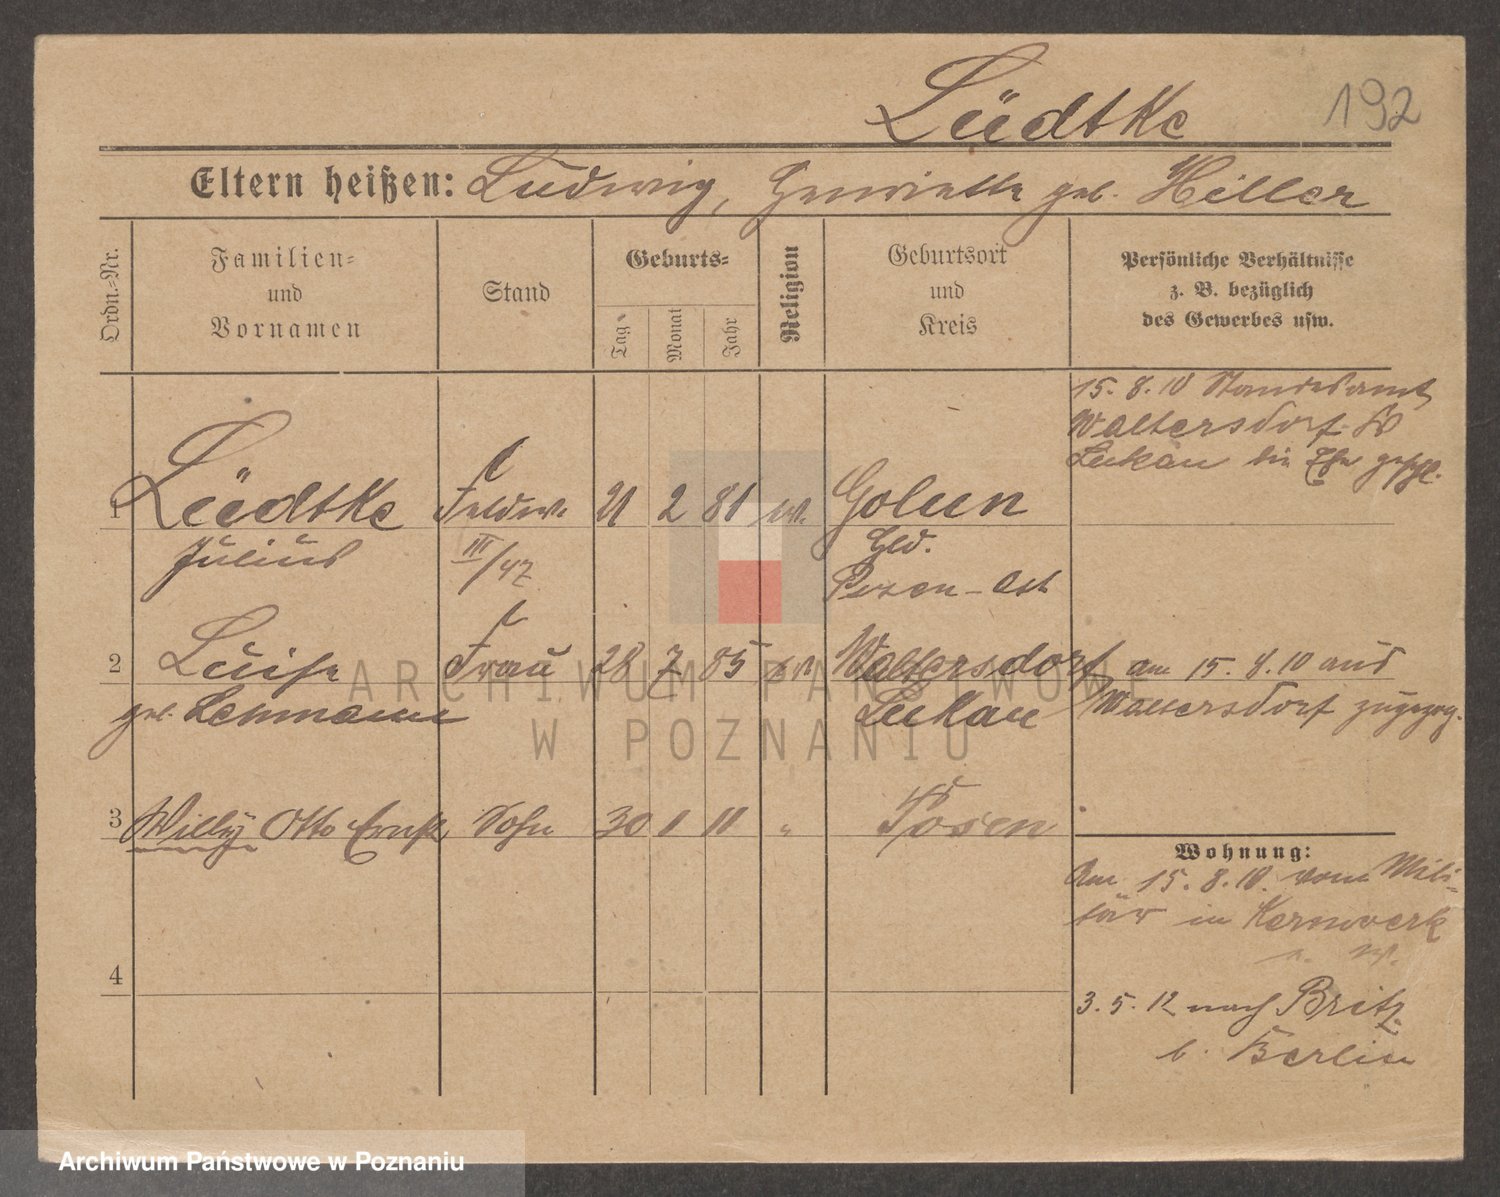 Lüdtke 192
Eltern heißen: Ludwig, Henriette geb. Hiller
Ordn.-Nr.
Familien-
und
Vornamen
Stand
Geburts-
Tag
Monat
Jahr
Religion
Geburtsort
und
Kreis
Persönliche Verhältnisse
z. B. bezüglich
des Gewerbes usw.
15. 8. 10 Standesamt
Waltersdorf
Luckau die Ehe geschl.
1 Lüdtke Feldw. 21 2 81 ev. Golun
Julius III/47 Gld.
Posen-Ost
2 Luise Frau 28 7 85 ev. Waltersdorf am 15. 8. 10 aus
geb. Lehmann Luckau Waltersdorf zugezog.
3 Willy Otto Ernst Sohn 30 1 11 " Posen
Wohnung:
Am 15. 8. 10. vom Mili-
tär in Kernwerk
4
3. 5. 12 nach Britz
b. Berlin
ARCHIWUM PAŃSTWOWE
W POZNANIU
Archiwum Państwowe w Poznaniu